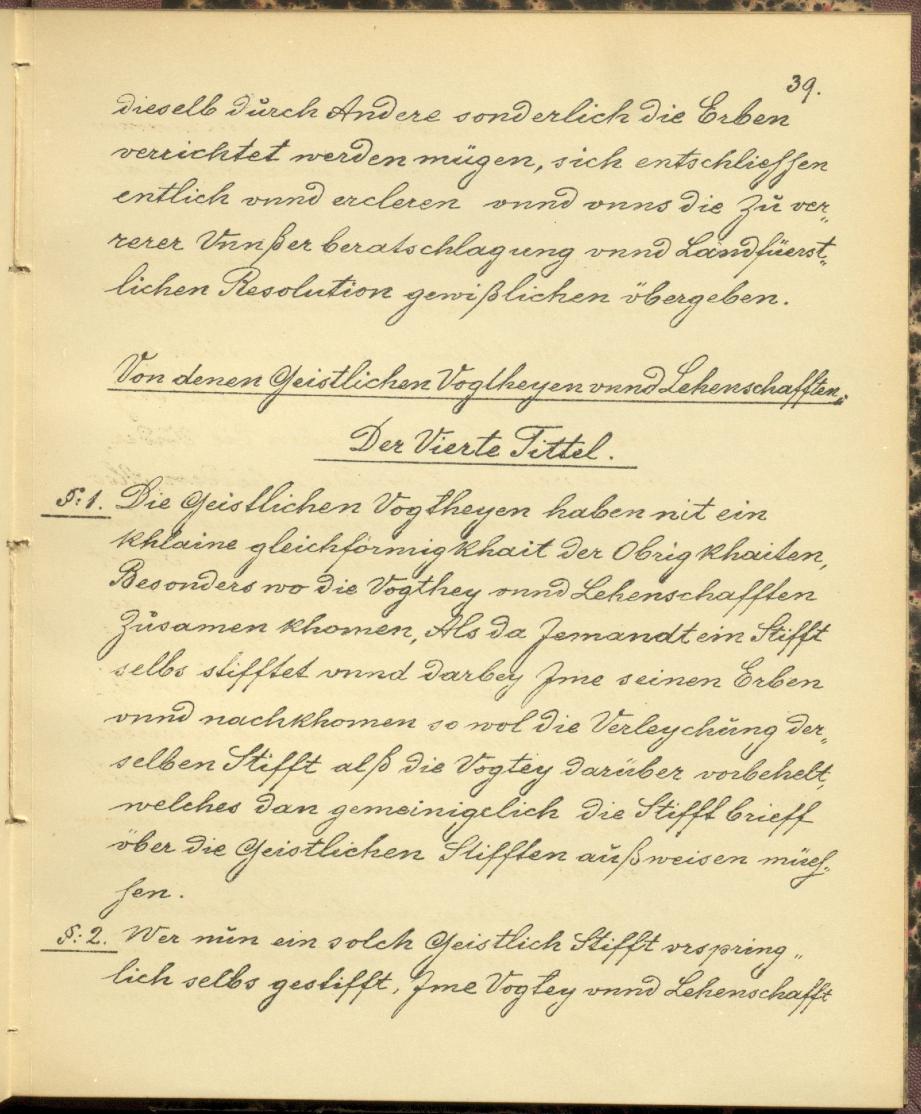 39.
dieselb durch Andere sonderlich die Erben
verrichtet werden mügen, sich entschliessen
entlich vnnd ercleren vnnd vnns die zu ver„
rerer Vnnßer beratschlagung vnnd Landfüerst„
lichen Resolution gewißlichen übergeben.
Von denen Geistlichen Vogtheyen vnnd Lehenschafften„
Der Vierte Tittel.
§: 1. Die Geistlichen Vogtheyen haben nit ein
khlaine gleichförmigkhait der Obrigkhaiten,
Besonders wo die Vogthey vnnd Lehenschafften
Zusamen khomen, Als da Jemandt ein Stifft
selbs stifftet vnnd darbey Jme seinen Erben
vnnd nachkhomen so wol die Verleychung der„
selben Stifft alß die Vogtey darüber vorbehelt,
welches dan gemeinigelich die Stifft brieff
über die Geistlichen Stifften außweisen müeß„
sen.
§: 2. Wer nun ein solch Geistlich Stifft vrspring„
lich selbs gestifft, Jme Vogtey vnnd Lehenschafft